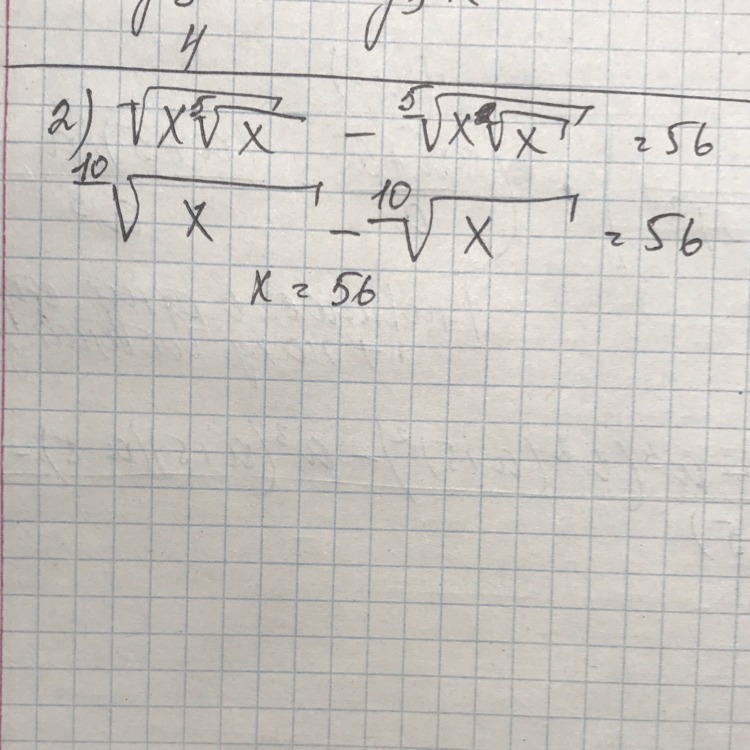 4
2) √(x⁵√x) − ⁵√(x√x) = 56
¹⁰√x − ¹⁰√x = 56
x = 56